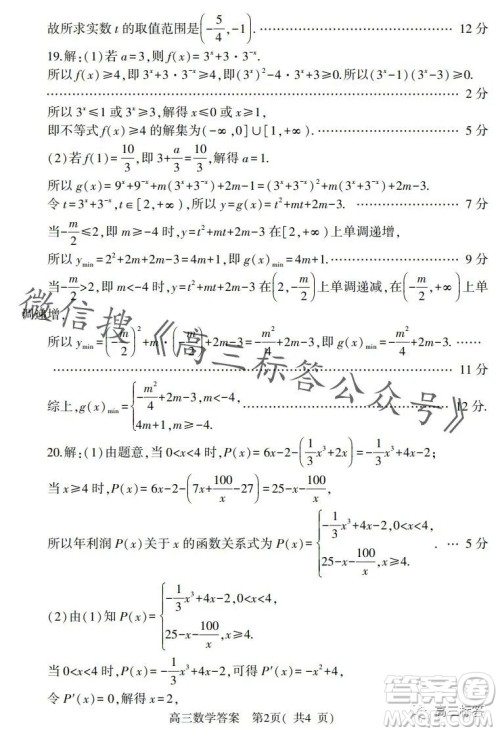 故所求实数 t 的取值范围是(-5/4,-1). ……………… 12 分
19.解:(1)若 a=3,则 f(x)=3^x+3·3^{-x}.
所以 f(x)≥4,即 3^x+3·3^{-x}≥4,即(3^x)^2-4·3^x+3≥0.所以(3^x-1)(3^x-3)≥0.
……………… 2 分
所以 3^x≤1 或 3^x≥3,解得 x≤0 或 x≥1,
即不等式 f(x)≥4 的解集为(-∞,0]∪[1,+∞). ……………… 5 分
(2)若 f(1)=10/3,即 3+a/3=10/3,解得 a=1.
所以 g(x)=9^x+9^{-x}+m(3^x+3^{-x})+2m-1=(3^x+3^{-x})^2+m(3^x+3^{-x})+2m-3.
令 t=3^x+3^{-x},t∈[2,+∞),所以 y=g(x)=t^2+mt+2m-3. ……………… 7 分
当-m/2≤2,即 m≥-4 时,y=t^2+mt+2m-3 在[2,+∞)上单调递增,
所以 y_min=2^2+2m+2m-3=4m+1,即 g(x)_min=4m+1. ……………… 9 分
当-m/2>2,即 m<-4 时,y=t^2+mt+2m-3 在(2,-m/2)上单调递减,在(-m/2,+∞)上单
调递增,
所以 y_min=(-m/2)^2+m·(-m/2)+2m-3=-m^2/4+2m-3,即 g(x)_min=-m^2/4+2m-3. ……
……………… 11 分
综上,g(x)_min={-m^2/4+2m-3,m<-4, 4m+1,m≥-4. ……………… 12 分.
20.解:(1)由题意,当 0<x<4 时,P(x)=6x-2-(1/3x^3+2x)=-1/3x^3+4x-2;
当 x≥4 时,P(x)=6x-2-(7x+100/x-27)=25-x-100/x.
所以年利润 P(x)关于 x 的函数关系式为 P(x)={-1/3x^3+4x-2,0<x<4, 25-x-100/x,x≥4. … 5 分
(2)由(1)知 P(x)={-1/3x^3+4x-2,0<x<4, 25-x-100/x,x≥4.
当 0<x<4 时,P(x)=-1/3x^3+4x-2,可得 P'(x)=-x^2+4,
令 P'(x)=0,解得 x=2,
高三数学答案 第2页( 共4 页)
微信搜《高三标答公众号》
高三标答
答案圈
MXQE.COM